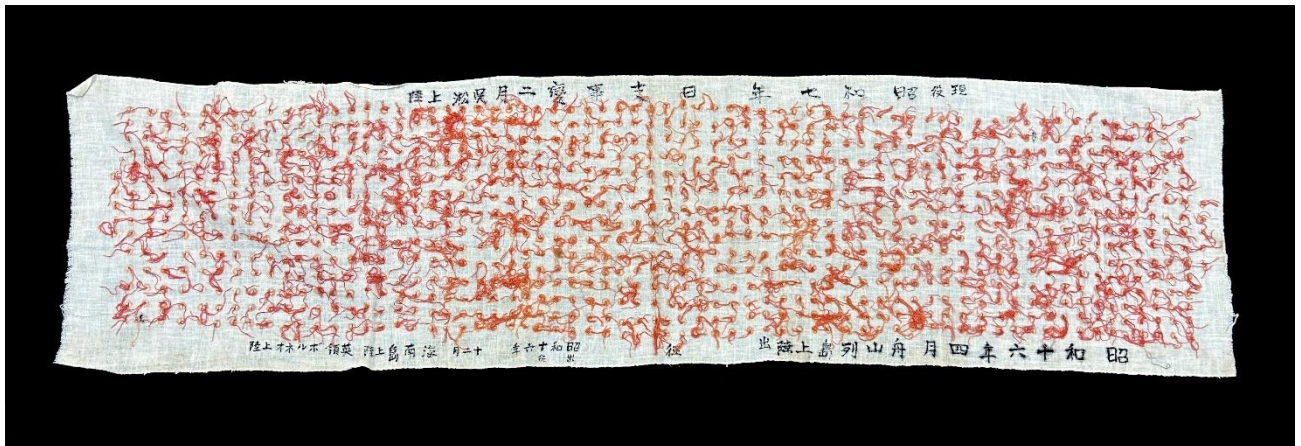 現役昭和七年日支事變二月呉淞上陸
昭和十六年四月舟山列島上陸出征
昭和十六年十二月海南島上陸英領ボルネオ上陸